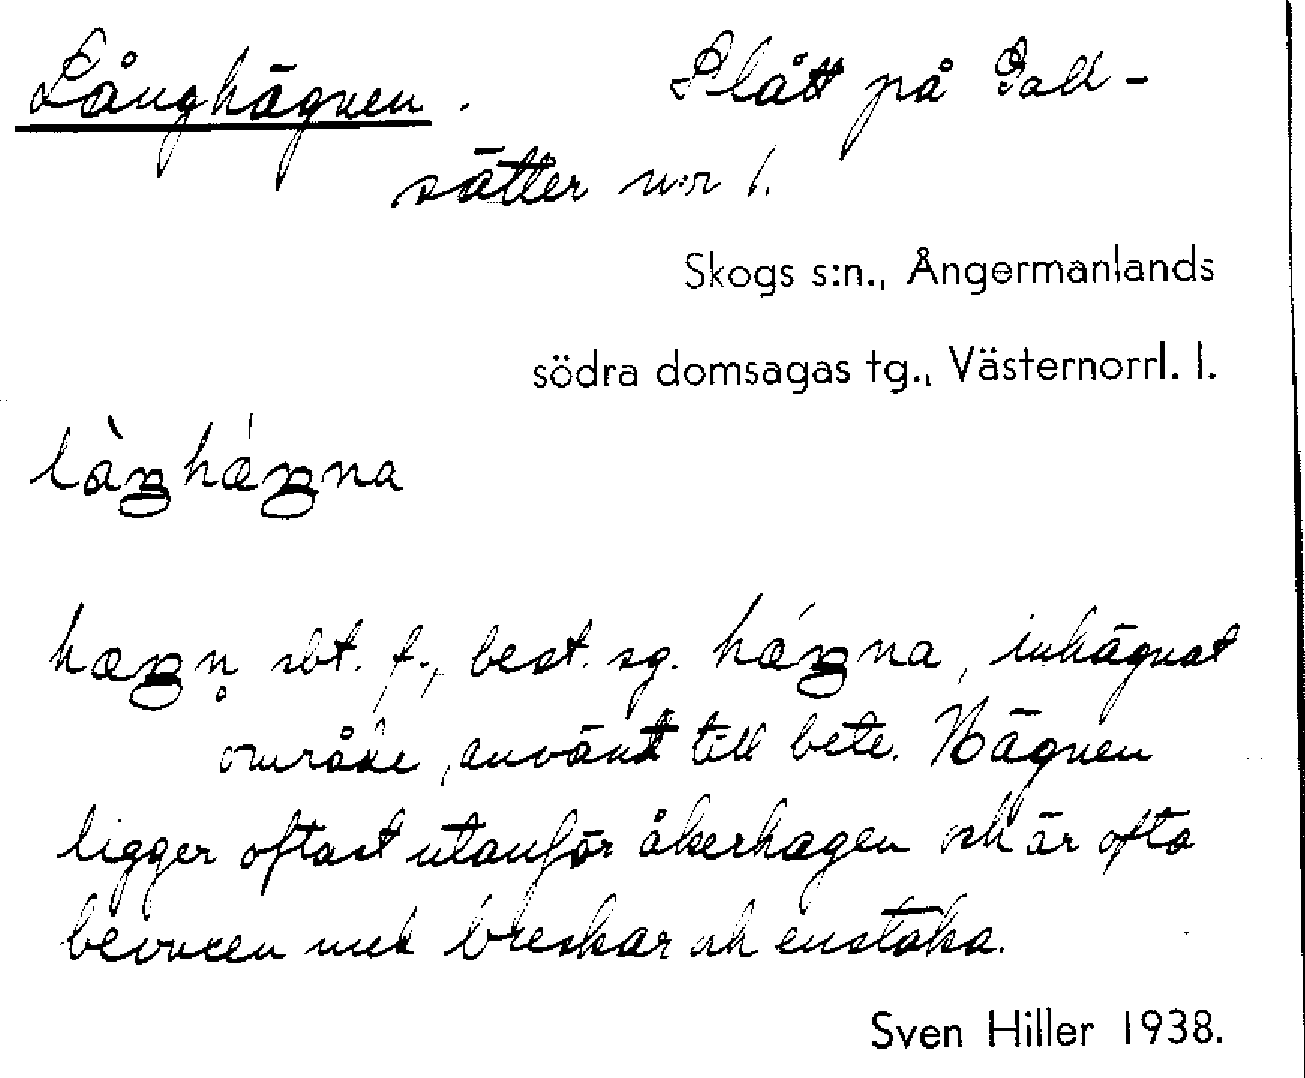 Långhägnen. Slått på Gall-
sätter n:r 1.
Skogs s:n., Ångermanlands
södra domsagas tg., Västernorrl. l.
làŋhǽŋna
hæŋn̥ sbt. f., best. sg. hǽŋna, inhägnat
område, använt till bete. Hägnen
ligger oftast utanför åkerhagen och är ofta
bevuxen med buskar och enstaka.
Sven Hiller 1938.